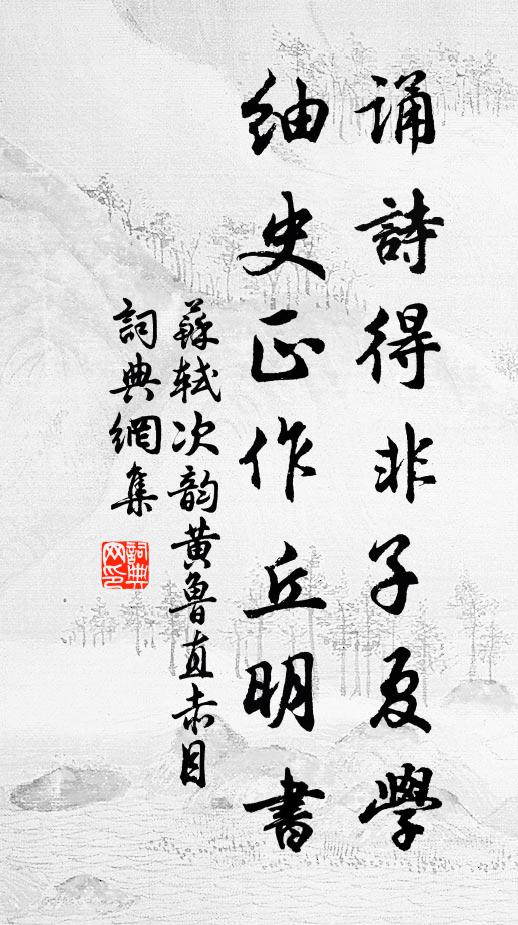 诵詩得非子夏學
紬史正作丘明書
蘇轼次韵黄魯直赤目
詞典網集
詞典网印